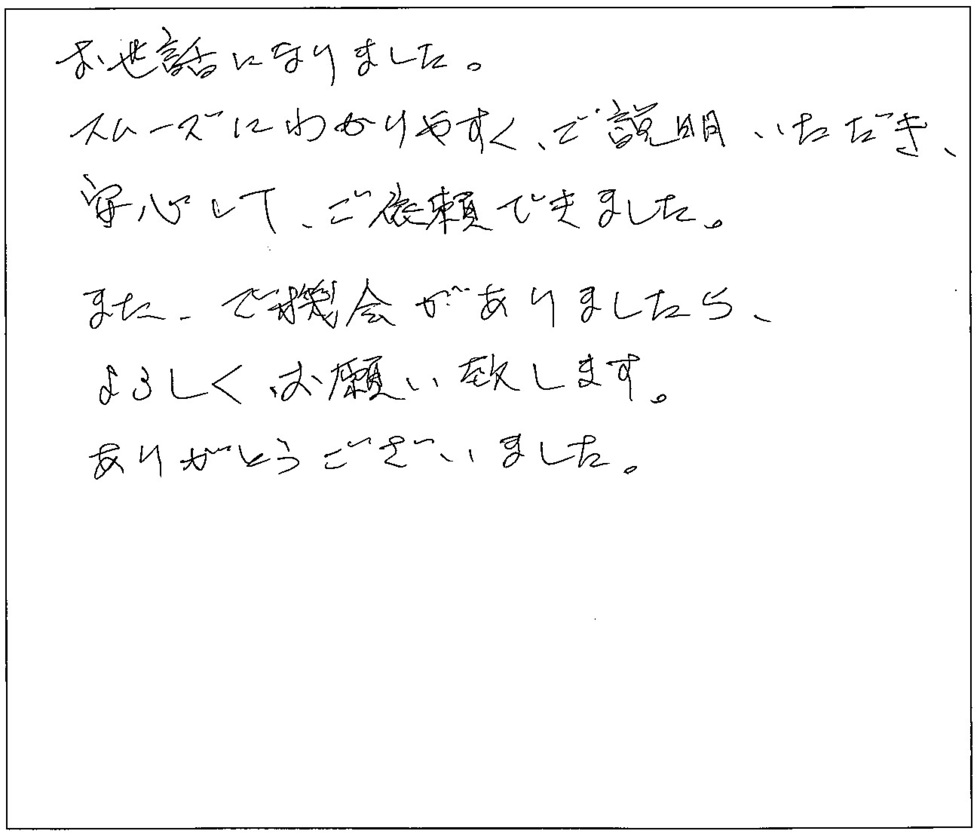 お世話になりました。
スムーズにわかりやすく、ご説明いただき、
安心して、ご依頼できました。
また、ご機会がありましたら、
よろしくお願い致します。
ありがとうございました。